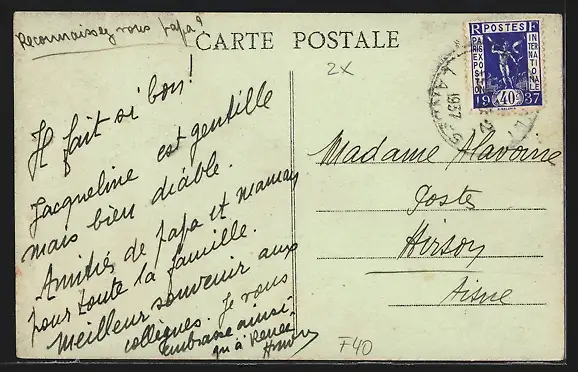 Reconnaissez vous papa?
CARTE POSTALE
2X
Il fait si bon!
Jacqueline est gentille
mais bien diable.
Amitiés de papa et maman
pour toute la famille.
Meilleur souvenir aux
collegues. Je vous
embrasse ainsi
qu'à Renée
F40
RF
POSTES
PARIS EXPOSITION
INTERNATIONALE
1937
40c
1937
Madame Flavoine
Postes
Hirson
Aisne